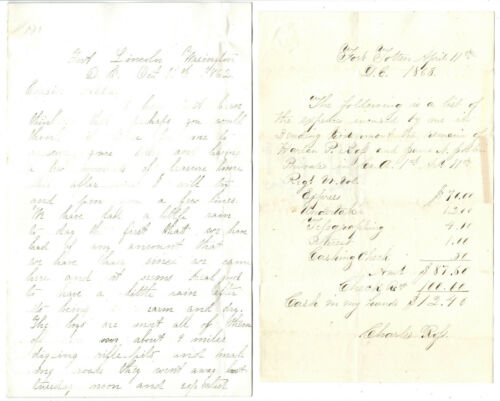 Fort Lincoln Washington
D. C. Oct 26th 1862
Cousin
I have just been
thinking that perhaps you would
think it time for me to
answer yours and having
a few moments of leisure time
this afternoon I will try
and pen you a few lines.
We have had a little rain
to day the first that we have
had of any amount that
we have had since we came
here and it seems real good
to have a little rain after
so being so warm and dry.
The boys are most all of them
about 4 miles
digging rifle pits and mak
ing roads they went away last
tuesday noon and expected
Fort Totten April 11th
D.C. 1863.
The following is a list of
the expense incurred by me in
sending home the remains of
Warren P. Ross and
Privates in Co. A. 1st
Regt
Express $ 70.00
Undertaker 12.00
Telegraphing 4.10
1.00
Cashing Check .50
Amt. $ 87.60
Check for 100.00
Cash in my hands $ 12.40
Charles Ross.